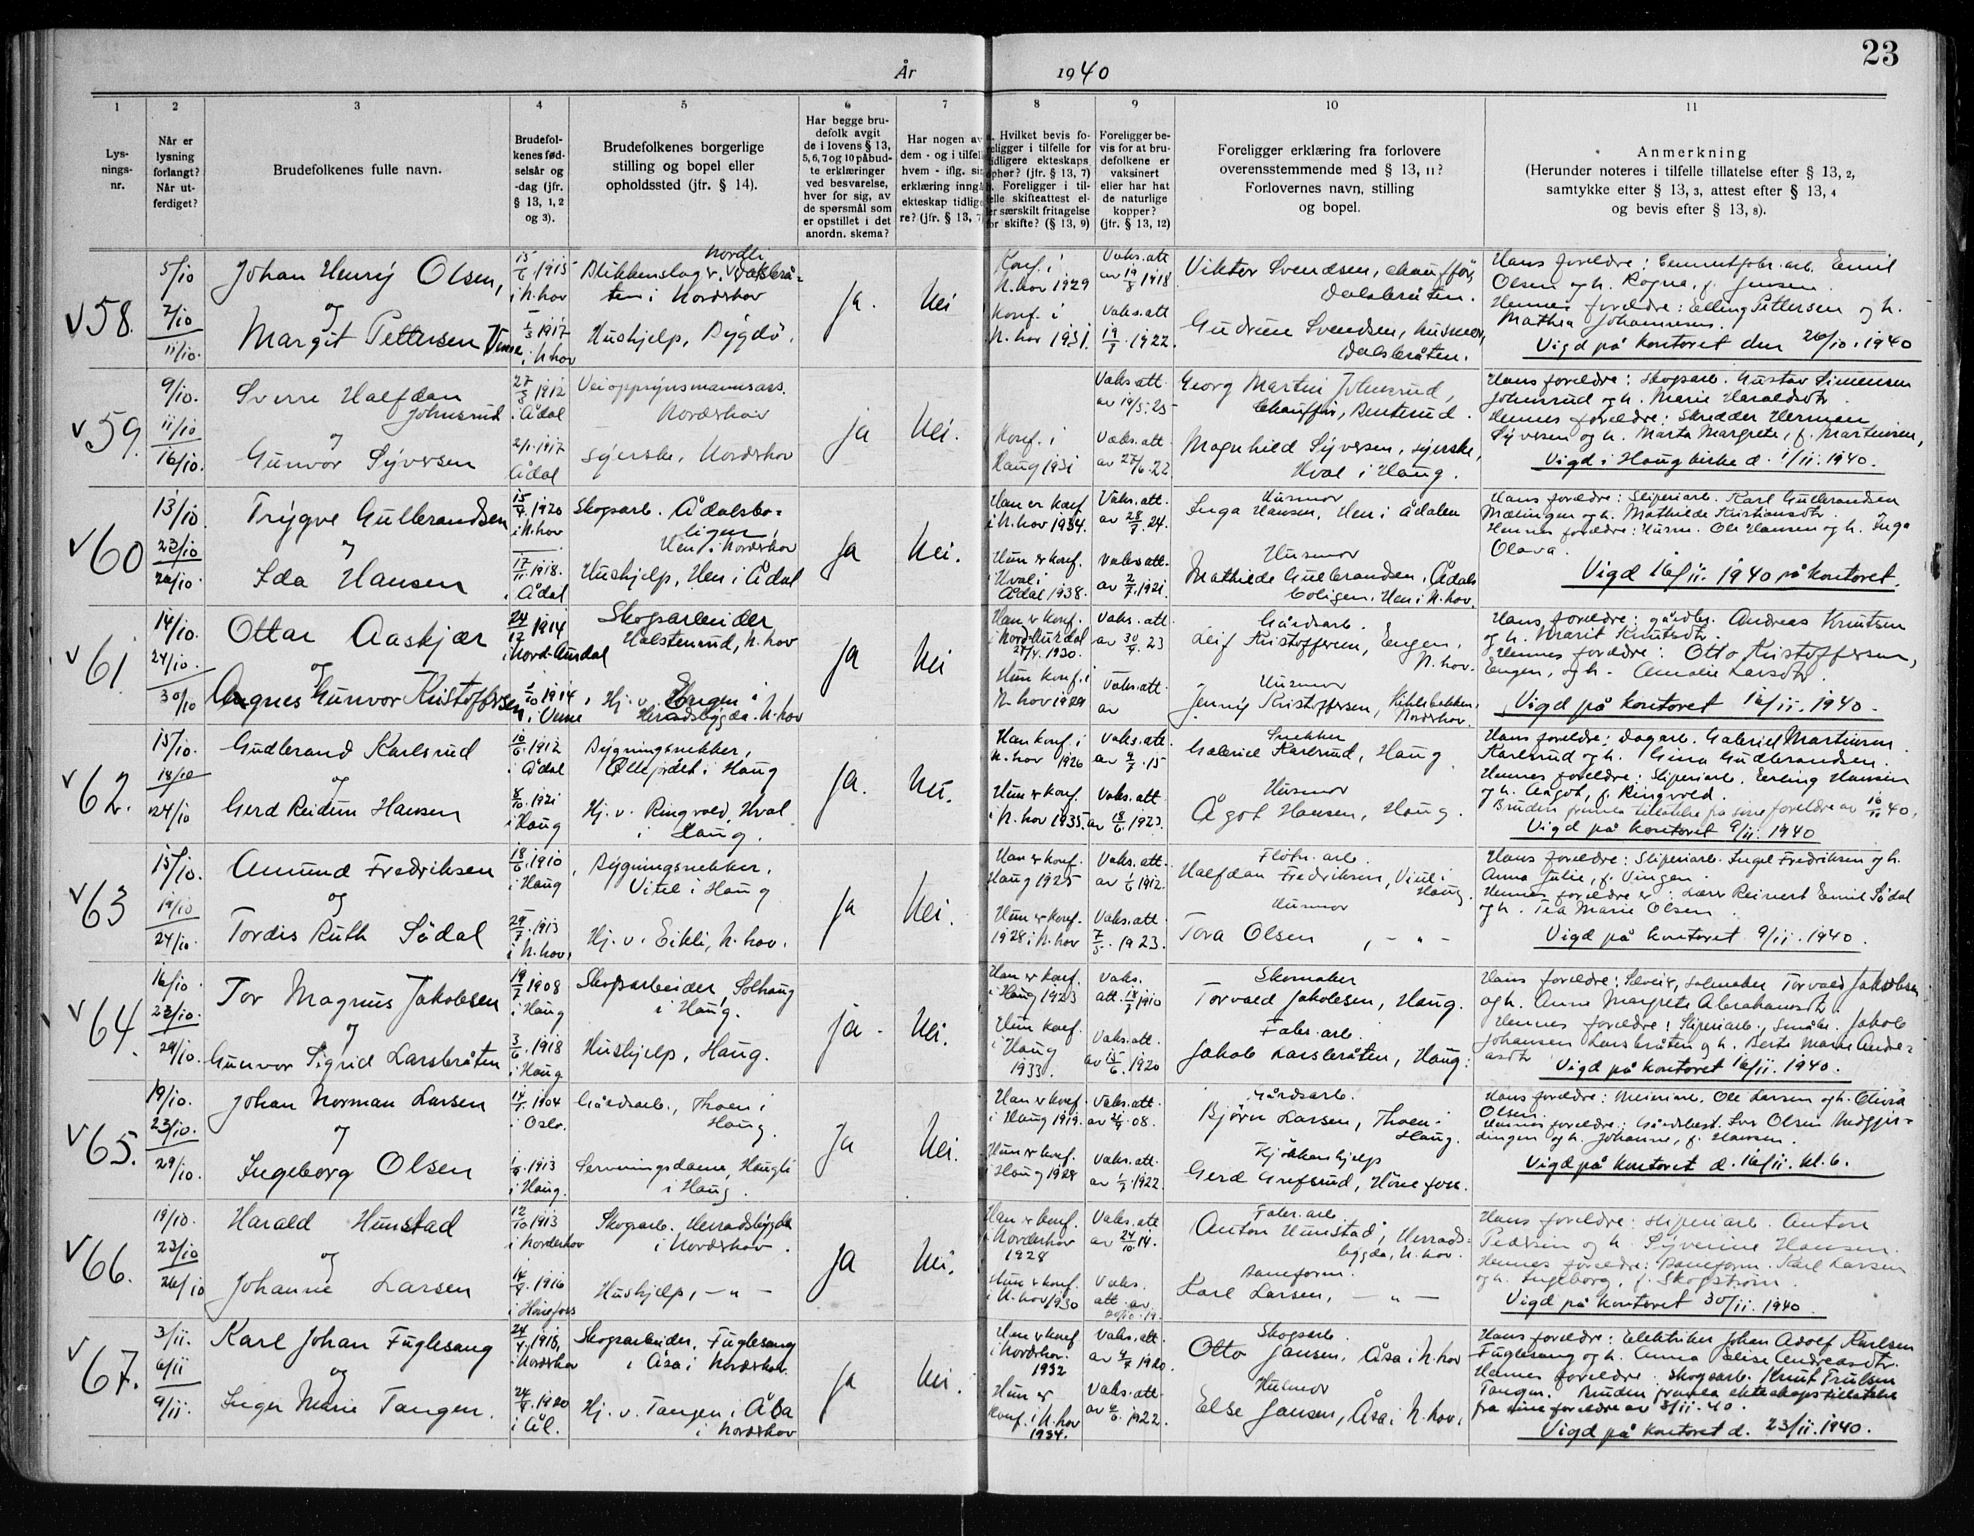 23
År 1940
1 2 3 4 5 6 7 8 9 10 11
Lys-
nings-
nr.
Når er
lysning
forlangt?
Når ut-
ferdiget?
Brudefolkenes fulle navn.
Brudefol-
kenes fød-
selsår og
-dag (jfr.
§ 13, 1, 2
og 3).
Brudefolkenes borgerlige
stilling og bopel eller
opholdssted (jfr. § 14).
Har begge bru-
defolk avgit
de i lovens § 13,
5, 6, 7 og 10 påbud-
te erklæringer
ved besvarelse,
hver for sig, av
de spørsmål som
er opstillet i det
anordn. skema?
Har nogen av
dem - og i tilfelle
hvem - iflg. sin
erklæring inngå
ekteskap tidlige
re? (jfr. § 13, 7)
Hvilket bevis fo-
religger i tilfelle for
tidligere ekteskaps
ophør? (jfr. § 13, 7)
Foreligger i til-
felle skifteattest el-
ler særskilt fritagelse
for skifte? (§ 13, 9)
Foreligger be-
vis for at bru-
defolkene er
vaksinert
eller har hat
de naturlige
kopper?
(jfr. § 13, 12)
Foreligger erklæring fra forlovere
overensstemmende med § 13, 11?
Forlovernes navn, stilling
og bopel.
Anmerkning
(Herunder noteres i tilfelle tillatelse efter § 13, 2,
samtykke efter § 13, 3, attest efter § 13, 4
og bevis efter § 13, 8).
V 58.
5/10
7/10
11/10.
Johan Henry Olsen,
og
Margit Pettersen Veme
15/6 1915
i N.hov
1/3 1917
i N.hov
Nordli
Blikkenslag.v. Dalsbrå-
ten i Norderhov
Hushjelp, Bygdø.
Ja.
Nei
Konf. i
N.hov 1929
Konf. i
N.hov 1931.
Vaks.att
av 19/8 1918
Vaks.att
19/7 1922.
Viktor Svendsen, chauffør,
Dalsbråten.
Gudrun Svendsen, husmor,
Dalsbråten.
Hans foreldre: Cementstøbr.arb. Emil
Olsen og h. Ragna, f. Jensen.
Hennes foreldre: Elling Pettersen og h.
Mathea Johannesen.
Vigd på kontoret den 26/10.1940
V 59.
9/10.
11/10
16/10.
Sverre Halfdan
Johnsrud
og
Gunvor Syversen
27/8 1912
i Ådal
2/1.1917
Ådal
Veiopsynsmannsass.
Norderhov
Syerske, Norderhov
Ja
Nei.
Konf. i
Haug 1931
Vaks.att
av 19/5.25
Vaks.att.
av 27/6.22
Georg Martin Johnsrud,
Chauffør, Benterud.
Magnhild Syversen, syerske,
Hval i Haug.
Hans foreldre: Skogsarb. Gustav Simensen
Johnsrud og h. Marie Haraldsdtr.
Hennes foreldre: Skredder Herman
Syversen og h. Marta Margrete, f. Martinsen,
Vigd i Haug kirke d. 1/11.1940.
V 60
13/10
23/10
26/10.
Trygve Gulbrandsen
og
Ida Hansen
15/4.1920
i N.hov
17/11.1918.
i Ådal
Skogsarb. Ådalsbo-
ligen,
Hen i Norderhov
Hushjelp, Hen i Ådal
Ja
Nei.
Han er konf
i N.hov 1934.
Hun er konf.
Hval i
Ådal 1938.
Vaks.att.
av 28/7.24.
Vaks.att.
av 2/7.1921.
Husmor
Inga Hansen, Hen i Ådalen
Husmor
Mathilde Gulbrandsen, Ådals
boligen, Hen i N.hov.
Hans foreldre: Sliperiarb. Karl Gulbrandsen
Mælingen og h. Mathilde Kristiansdtr.
Hennes foreldre: Husm. Ole Hansen og h. Inga
Olava.
Vigd 16/11.1940 på kontoret.
V 61.
14/10.
24/10.
30/10
Ottar Aaskjær
og
Agnes Gunvor Kristoffersen
24/12 1914
i Nord-Aurdal
1/10 1914
i Veme
Skogsarbeider
Halstenrud, N.hov
Hj. v. Engen i
Heradsbygda, N.hov
Ja
Nei
Han er konf.
i Nord-Aurdal
27/4.1930.
Hun konf. i
N.hov 1929
Vaks.att.
av 30/9.23
Vaks.att.
av
Gårdsarb.
Leif Kristoffersen, Engen,
N.hov.
Husmor
Jenny Kristoffersen, Kihlebekken,
Norderhov.
Hans foreldre: gårdbr. Andreas Knutsen
og h. Marit Knutsdtr.
Hennes foreldre: Otto Kristoffersen,
Engen, og h. Amalie Larsdtr.
Vigd på kontoret 16/11.1940.
V 62.
15/10.
18/10
24/10
Gudbrand Karlsrud
og
Gerd Reidun Hansen
10/6.1912
i Ådal
8/10.1921
i Haug
Bygningssnekker,
Ollejordet i Haug
Hj. v. Ringvold, Hval
i Haug.
Ja.
Nei.
Han konf. i
N.hov 1926
Hun er konf.
i N.hov 1935.
Vaks.att.
av 2/7.15
Vaks.att.
av 18/6.1923.
Snekker
Gabriel Karlsrud, Haug
Husmor
Ågot Hansen, Haug.
Hans foreldre: Dagarb. Gabriel Martinsen
Karlsrud og h. Gina Gudbrandsen.
Hennes foreldre: Sliperiarb. Erling Hansen
og h. Aagot, f. Ringvold.
Bruden fremla tillatelse fra sine foreldre av 16/10 40,
Vigd på kontoret 9/11.1940
V 63
15/10.
19/10
24/10.
Amund Fredriksen
og
Tordis Ruth Sødal
18/6.1910
i Haug
29/7.1913
i N.hov.
Bygningssnekker,
Vitil i Haug
Hj. v. Eikli, N.hov.
Ja
Nei.
Han er konf.
Haug 1925
Hun er konf.
1928 i N.hov
Vaks.att.
av 1/6 1912.
Vaks.att.
7/5.1923.
Fløtn.arb.
Halfdan Fredriksen, Vitil i
Haug.
Husmor
Tora Olsen, -"-
Hans foreldre: Sliperiarb. Ingel Fredriksen og h.
Anna Julie, f. Vingen.
Hennes foreldre er: Lærer Reinert Emil Sødal
og h. Tea Marie Olsen.
Vigd på kontoret 9/11.1940.
V 64.
16/10.
23/10.
29/10.
Tor Magnus Jakobsen
og
Gunvor Sigrid Larsbråten
19/7 1908
i Haug
3/6.1918
i Haug
Skogsarbeider, Solhaug
i Haug.
Hushjelp, Haug.
Ja.
Nei.
Han er konf.
i Haug 1923
Hun konf.
i Haug
1933.
Vaks.
att. 14/7 1910
Vaks.att.
av 15/6.1920
Skomaker
Torvald Jakobsen, Haug.
Fabr.arb.
Jakob Larsbråten, Haug.
Hans foreldre: Selveier, skomaker Torvald Jakobsen
og h. Anne Margrete Abrahamsdtr.
Hennes foreldre: Sliperiarb., småbr. Jakob
Johansen Larsbråten og h. Berte Marie Andre-
asdtr
Vigd på kontoret 16/11.1940.
V 65.
19/10.
23/10.
29/10.
Johan Norman Larsen
og
Ingeborg Olsen
14/1.1904
i Oslo.
1/9.1913
i Haug.
Gårdsarb., Thoen i
Haug.
Serveringsdame, Haugli
i Haug.
Ja
Nei.
Han er konf.
i Haug 1919.
Hun er konf.
i Haug 1928
Vaks.att.
av 21/9.08.
Vaks.att.
av 1/7.1922
Gårdsarb.
Bjørn Larsen, Thoen i
Haug.
Kjøkkenhjelp
Gerd Grefsrud, Hønefoss.
Hans foreldre: Ole Larsen og h. Olivia
Olsen.
Hennes foreldre: Gårdbest. Iver Olsen
og h. Johanne, f. Hansen.
Vigd på kontoret d. 16/11. kl. 6.
V 66.
19/10.
23/10
26/10
Harald Hunstad
og
Johanne Larsen
12/10 1913
i Norderhov
14/9.1916
i Hønefoss
Skogsarb. Herradsbygda
i Norderhov.
Hushjelp, -"-
Ja
Nei.
Han er konf.
Norderhov
1928
Hun er konf.
i N.hov 1930
Vaks.att
av 24/10 14.
Vaks.
att. av
Fabr.arb.
Anton Hunstad, Herrads-
bygda, N.hov.
Baneform.
Karl Larsen, -"-
Hans foreldre: Sliperiarb. Anton
Pedersen og h. Syverine Hansen.
Hennes foreldre: Baneform. Karl Larsen
og h. Ingeborg, f. Skogstrøm.
Vigd på kontoret 30/11.1940.
V 67.
3/11.
6/11
9/11.
Karl Johan Fuglesang
og
Inger Marie Tangen.
24/4.1918,
i Norderhov
24/4.1920
i Ål.
Skogsarbeider, Fuglesang
i Åsa i Norderhov.
Hj. v. Tangen i Åsa
i Norderhov
Ja
Nei.
Han er konf
i Norderhov.
1932
Hun er
konf. i N.hov
1934.
Vaks.att.
av 4/7.1920.
Vaks.att.
av 2/6.1922.
Skogsarb.
Otto Jansen, Åsa i N.hov
Husmor
Else Jansen, Åsa i N.hov.
Hans foreldre: Elektriker Johan Adolf Karlsen
Fuglesang og h. Anna Elise Andreasdtr.
Hennes foreldre: Skogsarb. Knut Trulsen
Tangen. Bruden fremla ekteskapstillatelse
fra sine foreldre av 3/11.40.
Vigd på kontoret d. 23/11.1940.